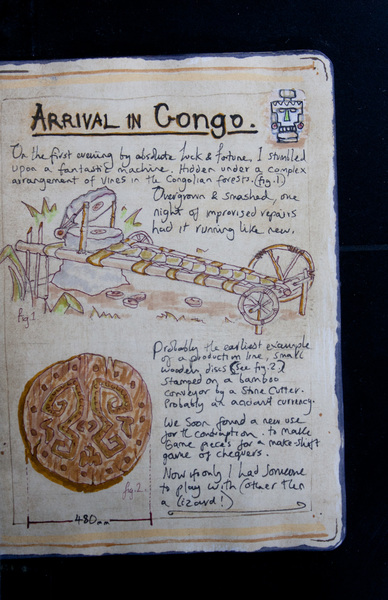 ARRIVAL IN Congo.
On the first evening by absolute luck & fortune, I stumbled
upon a fantastic machine. Hidden under a complex
arrangement of vines in the Congolian forests. (fig.1)
Overgrown & smashed, one
night of improvised repairs
had it running like new.
fig.1
Probably the earliest example
of a production line, small
wooden discs (see fig.2)
stamped on a bamboo
conveyor by a Stone Cutter.
Probably an ancient currency.
We soon found a new use
for the contraption, to make
Game pieces for a make-shift
game of chequers.
Now if only I had someone
to play with (other then
a lizard!)
fig.2
480mm